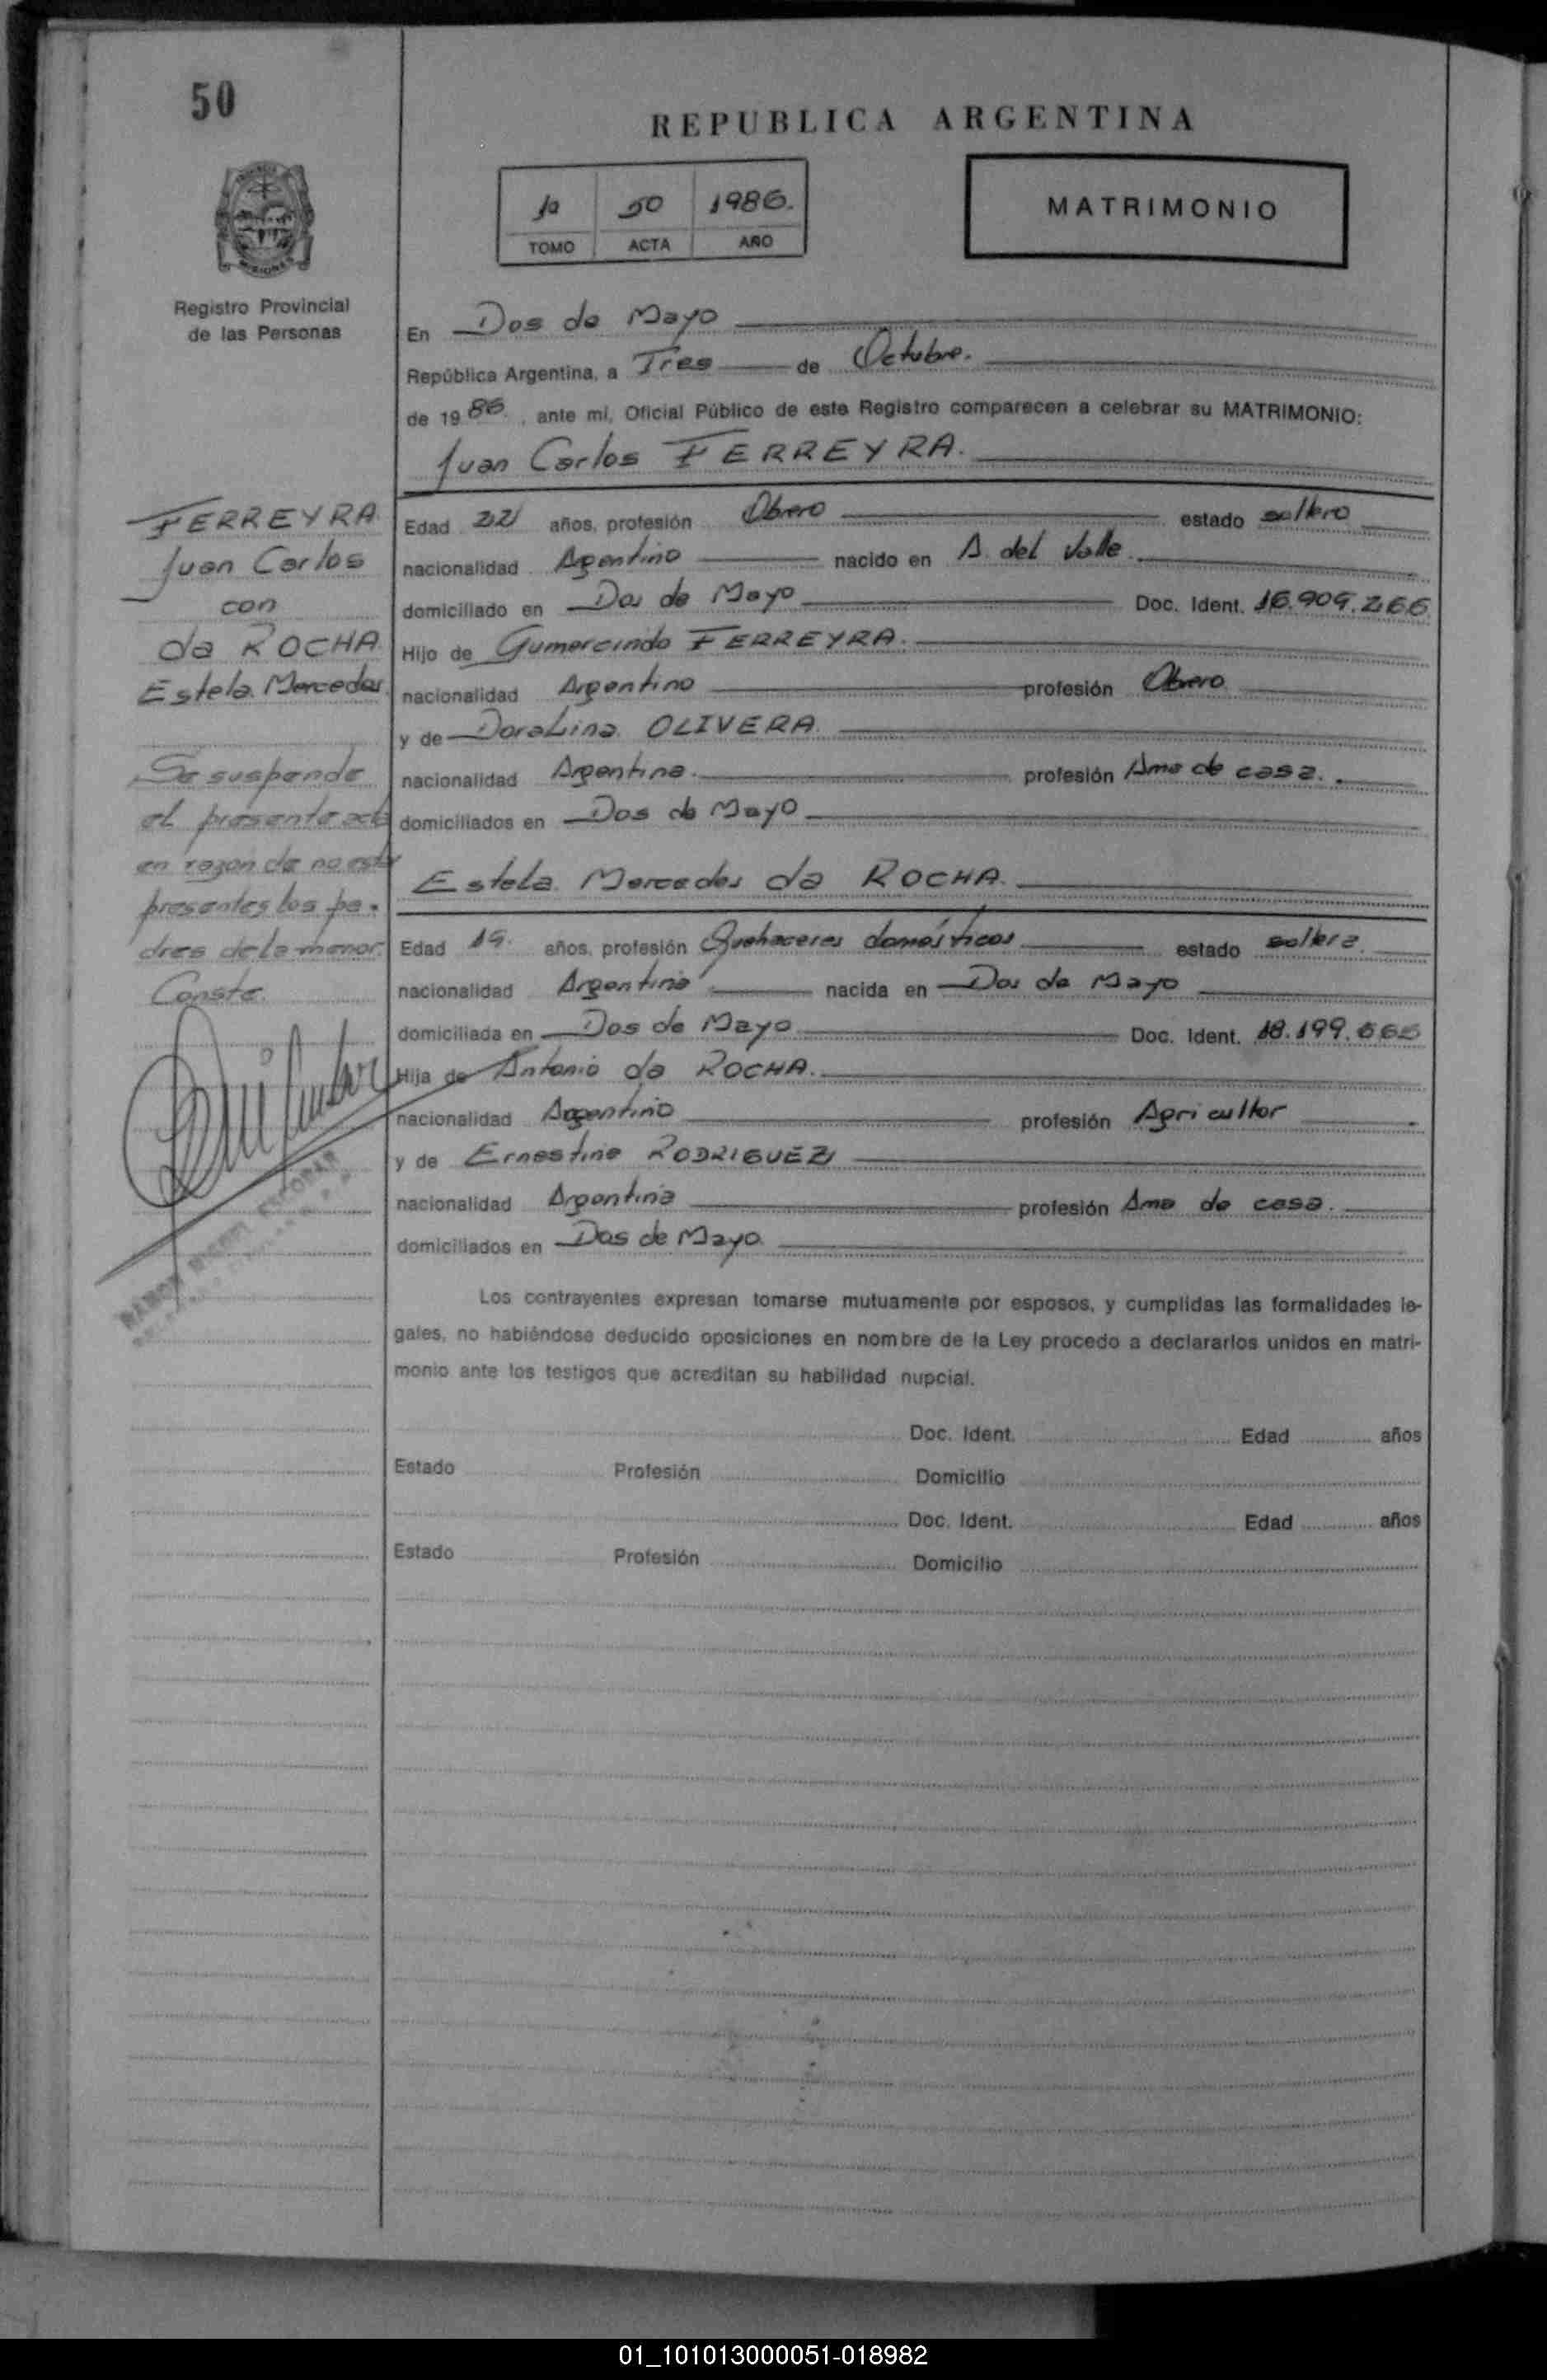 50
REPUBLICA ARGENTINA
1º 50 1986.
TOMO ACTA AÑO
MATRIMONIO
MISIONES
Registro Provincial
de las Personas
En Dos de Mayo
República Argentina, a Tres de Octubre.
de 1986, ante mí, Oficial Público de este Registro comparecen a celebrar su MATRIMONIO:
Juan Carlos FERREYRA.
FERREYRA
Juan Carlos
con
da ROCHA
Estela Mercedes.
Se suspende
el presente acto
en razón de no estar
presentes los pa-
dres de la menor.
Conste.
RAMON ESCOBAR
Edad 22 años, profesión Obrero estado soltero
nacionalidad Argentino nacido en A. del Valle.
domiciliado en Dos de Mayo Doc. Ident. 16.909.266
Hijo de Gumercindo FERREYRA.
nacionalidad Argentino profesión Obrero
y de Doralina OLIVERA.
nacionalidad Argentina. profesión Ama de casa.
domiciliados en Dos de Mayo
Estela Mercedes da ROCHA.
Edad 19. años, profesión Quehaceres domésticos estado soltera
nacionalidad Argentina nacida en Dos de Mayo
domiciliada en Dos de Mayo Doc. Ident. 18.199.665
Hija de Antonio da ROCHA.
nacionalidad Argentino profesión Agricultor
y de Ernestina RODRIGUEZ
nacionalidad Argentina profesión Ama de casa.
domiciliados en Dos de Mayo.
Los contrayentes expresan tomarse mutuamente por esposos, y cumplidas las formalidades le-
gales, no habiéndose deducido oposiciones en nombre de la Ley procedo a declararlos unidos en matri-
monio ante los testigos que acreditan su habilidad nupcial.
Doc. Ident. Edad años
Estado Profesión Domicilio
Doc. Ident. Edad años
Estado Profesión Domicilio
01_101013000051-018982